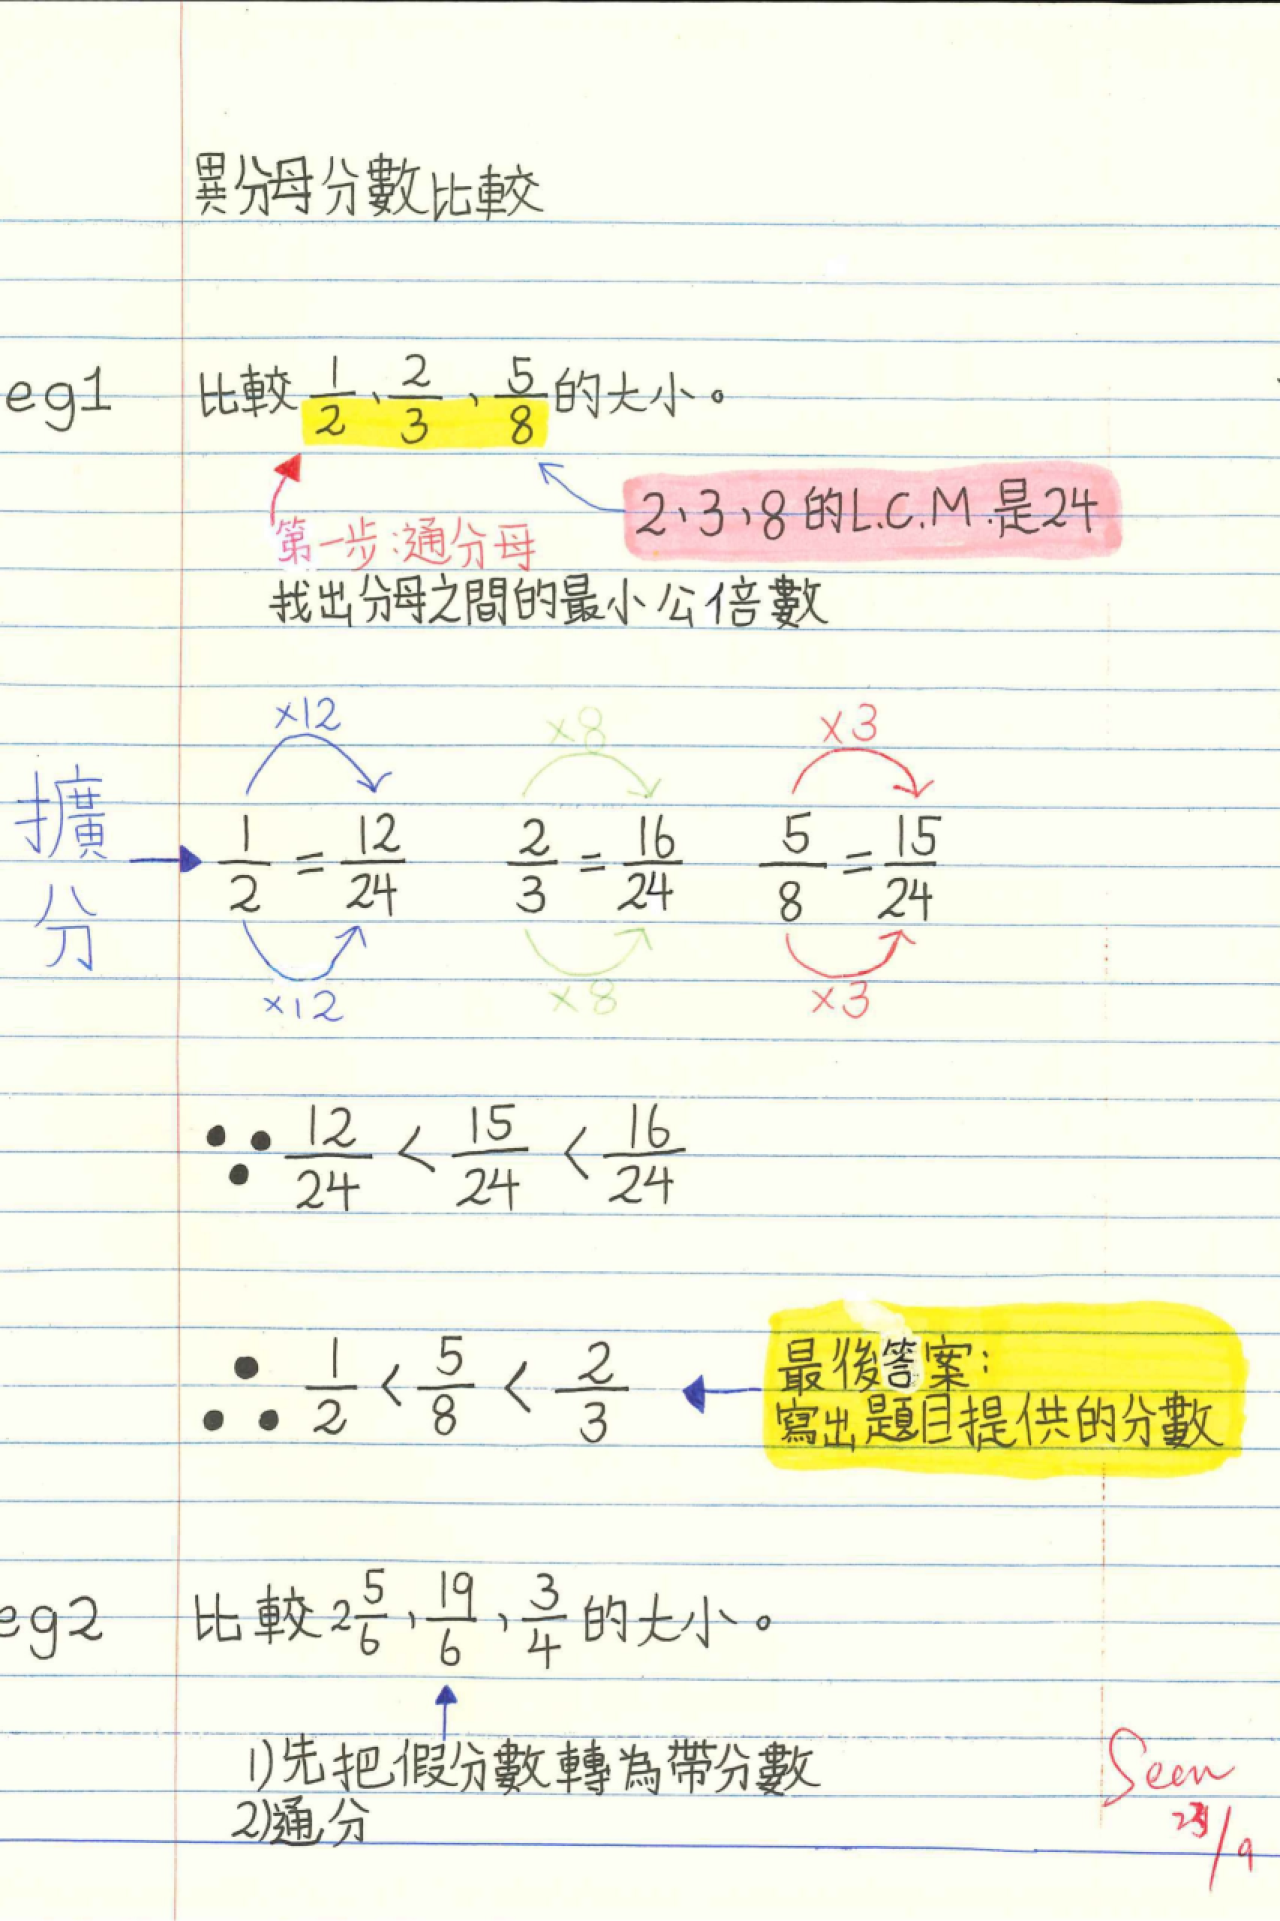 異分母分數比較
eg1 比較 1/2、2/3、5/8 的大小。
2、3、8的L.C.M.是24
第一步:通分母
找出分母之間的最小公倍數
×12 ×8 ×3
擴分
1/2 = 12/24 2/3 = 16/24 5/8 = 15/24
×12 ×8 ×3
∵ 12/24 < 15/24 < 16/24
∴ 1/2 < 5/8 < 2/3
最後答案:
寫出題目提供的分數
eg2 比較 2 5/6、19/6、3/4 的大小。
1)先把假分數轉為帶分數
2)通分
Seen
/9